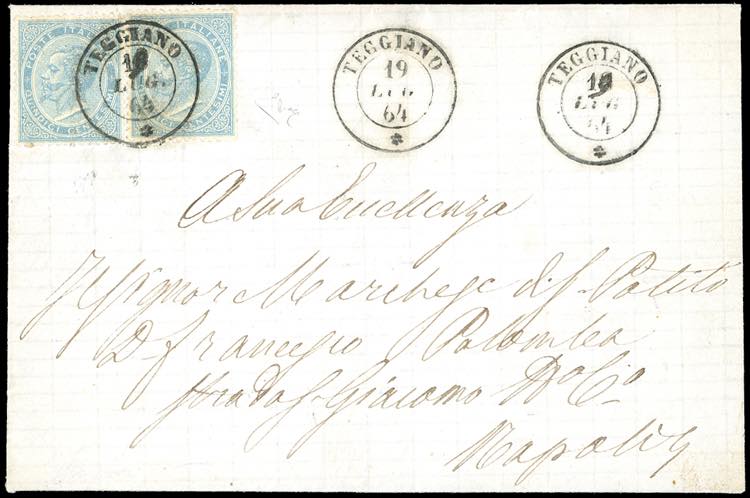 POSTE ITALIANE
QUINDICI CENTESIMI
TEGGIANO
19
LUG.
64
TEGGIANO
19
LUG
64
TEGGIANO
19
LUG
64
A Sua Eccellenza
Il Signor Marchese di S. Potito
D. Francesco Palomba
Strada S. Giacomo
Napoli